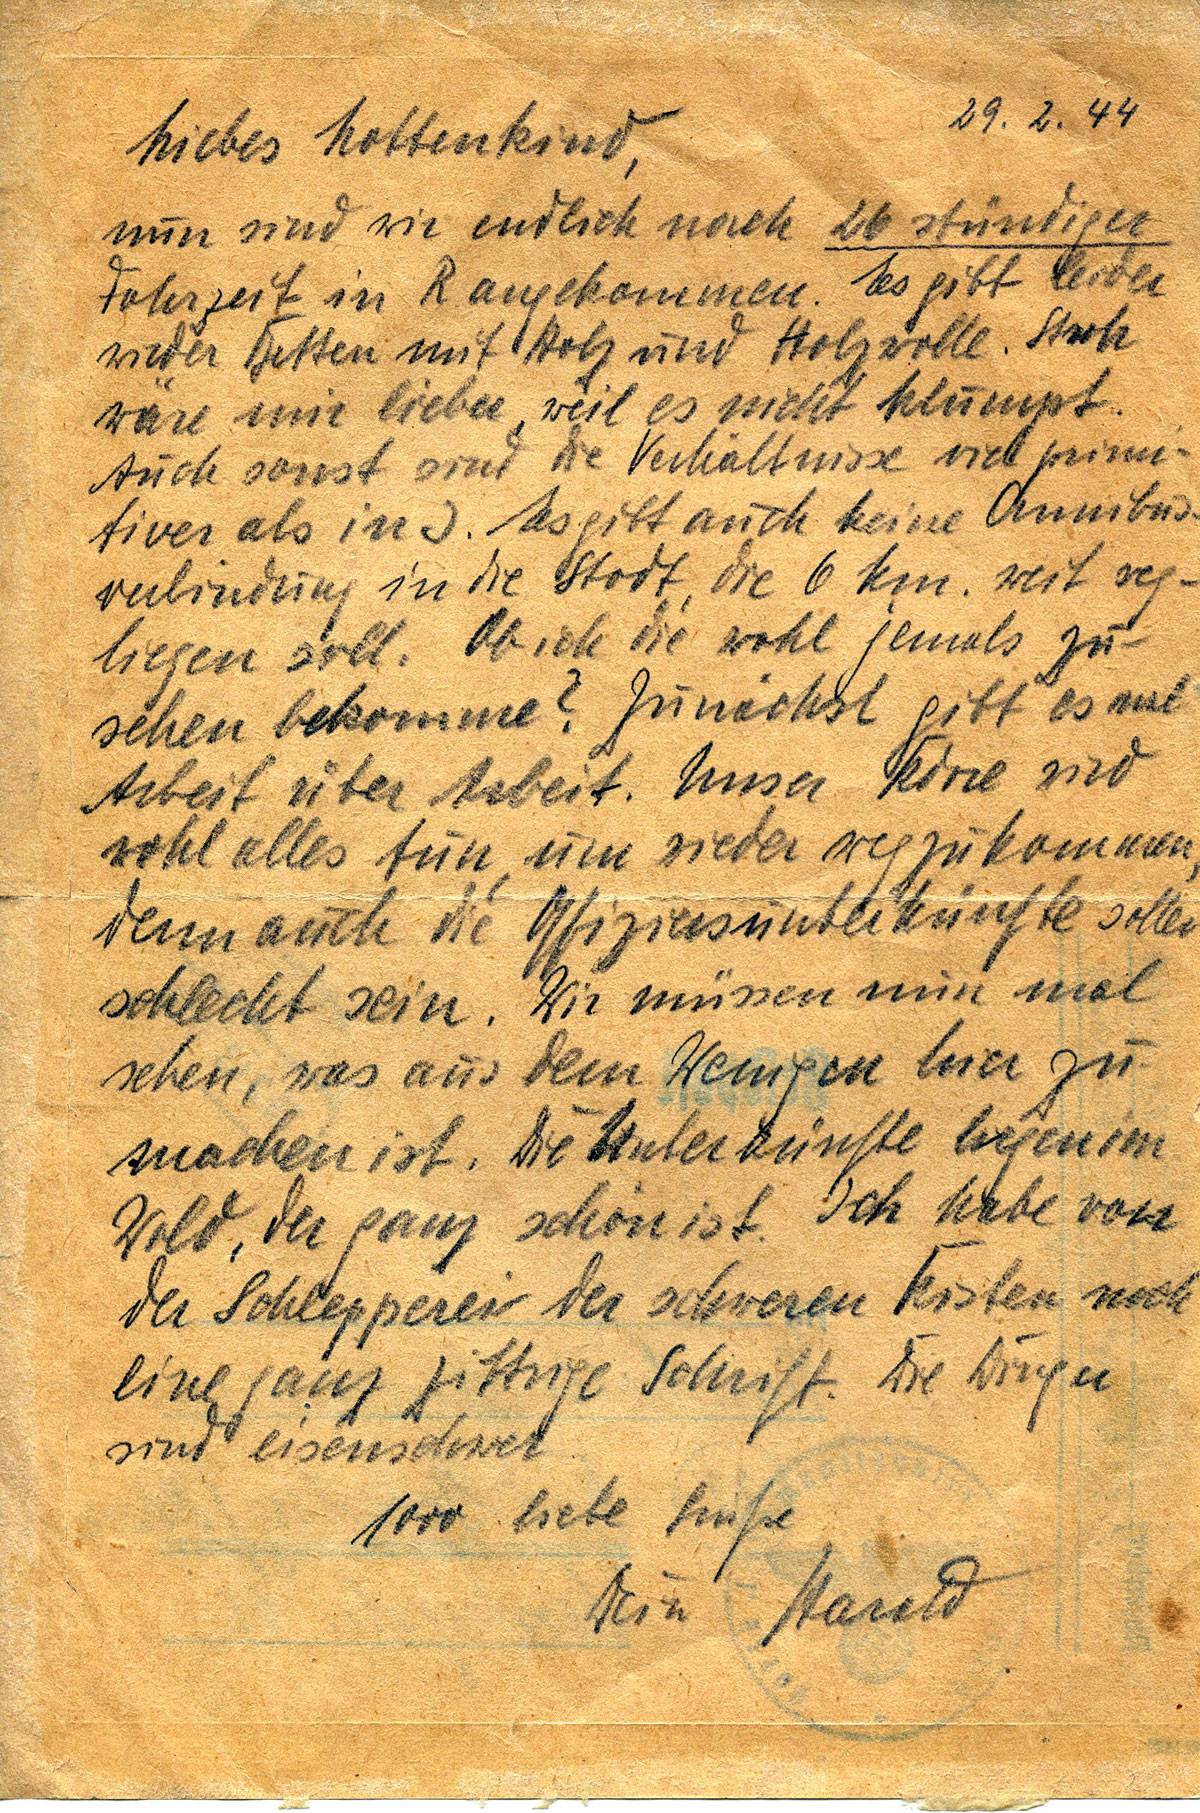 29. 2. 44
Liebes Lottenkind,
nun sind wir endlich nach 26 stündiger
Fahrzeit in R angekommen. Es gibt leider
wieder Betten mit Holz und Holzwolle. Stroh
wäre mir lieber, weil es nicht klumpt.
Auch sonst sind die Verhältnisse viel primi-
tiver als in J. Es gibt auch keine Omnibus-
verbindung in die Stadt, die 6 km. weit weg-
liegen soll. Ob ich die wohl jemals zu-
sehen bekomme? Zunächst gibt es mal
Arbeit über Arbeit. Unser wird
wohl alles tun, um wieder wegzukommen,
denn auch die Offiziersunterkünfte sollen
schlecht sein. Wir müssen nun mal
sehen, was aus dem Wenigen hier zu-
machen ist. Die Unterkünfte liegen im
Wald, der ganz schön ist. Ich habe von
der Schlepperei der schweren Kisten noch
eine ganz zittrige Schrift. Die Dinger
sind eisenschwer
1000 liebe Grüße
Dein Harald